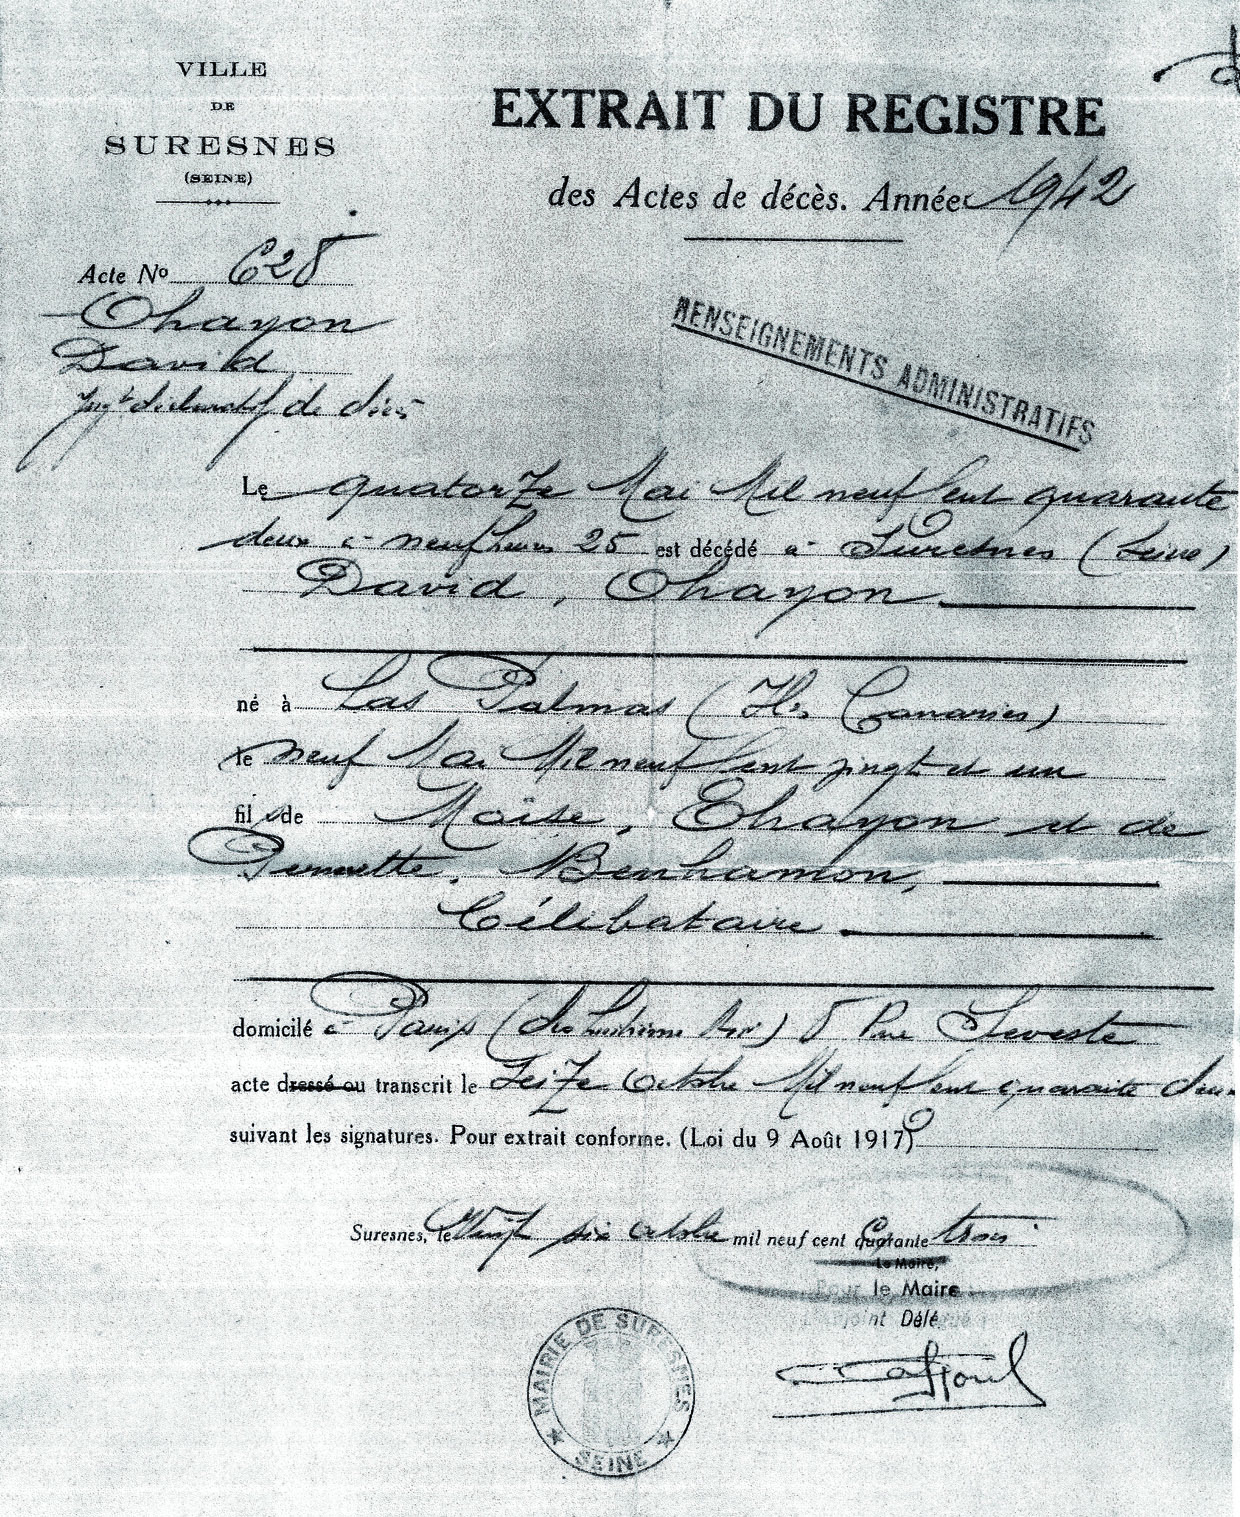 VILLE
DE
SURESNES
(SEINE)
EXTRAIT DU REGISTRE
des Actes de décès. Année 1942
Acte No 628
Ohayon
David
Jugt déclaratif de décès
RENSEIGNEMENTS ADMINISTRATIFS
Le quatorze Mai Mil neuf Cent quarante
deux à neuf heures 25 est décédé à Suresnes (Seine)
David, Ohayon
né à Las Palmas (Iles Canaries)
le neuf Mai Mil neuf Cent vingt et un
fils de Moïse, Ohayon et de
Benhamon,
Célibataire
domicilé à Paris (dix huitième Arrt) 8 Rue Seveste
acte dressé ou transcrit le Seize Octobre Mil neuf Cent quarante deux
suivant les signatures. Pour extrait conforme. (Loi du 9 Août 1917)
Suresnes, le Vingt six octobre mil neuf cent quarante trois
Le Maire,
Pour le Maire
L'Adjoint Délégué
MAIRIE DE SURESNES
SEINE